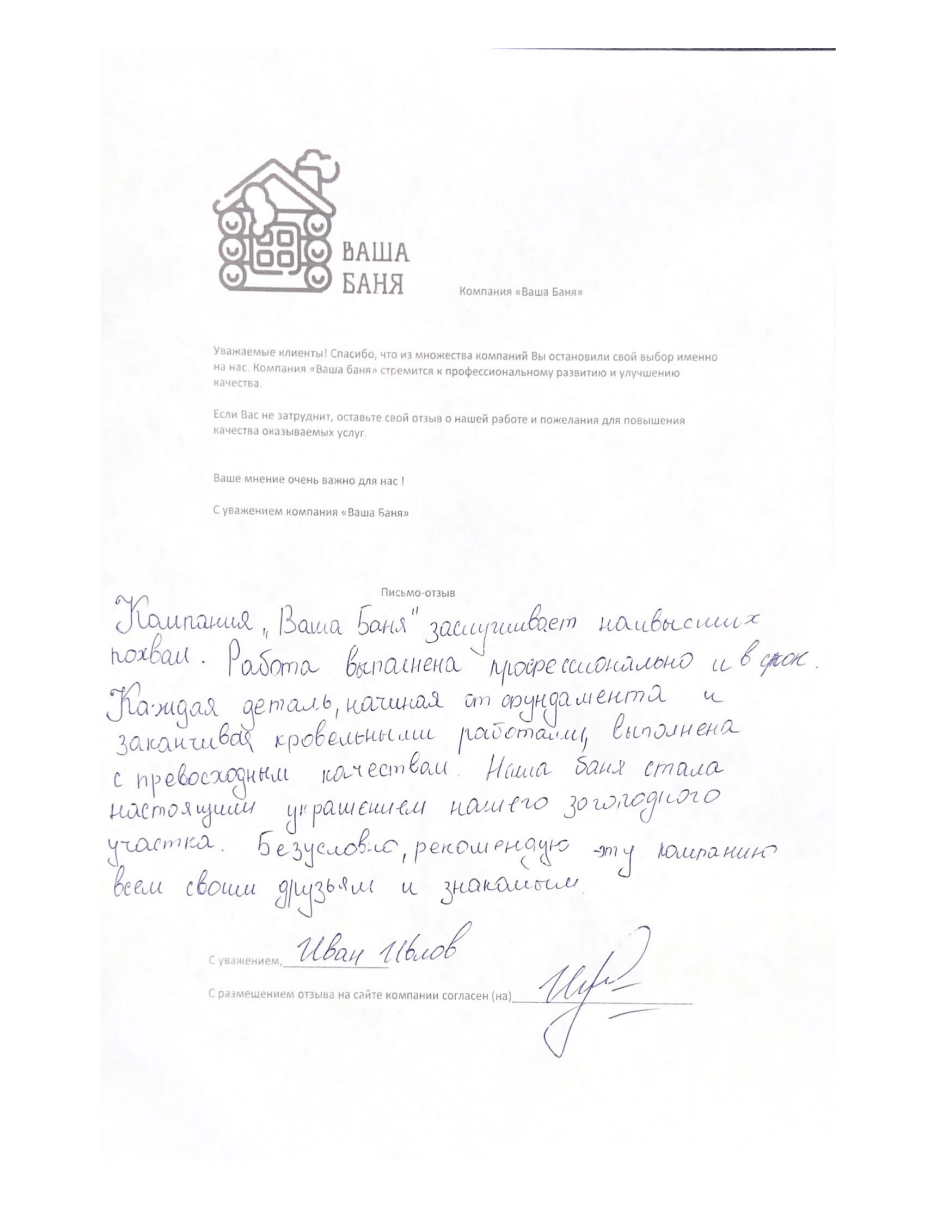 ВАША
БАНЯ
Компания «Ваша Баня»
Уважаемые клиенты! Спасибо, что из множества компаний Вы остановили свой выбор именно
на нас. Компания «Ваша баня» стремится к профессиональному развитию и улучшению
качества.
Если Вас не затруднит, оставьте свой отзыв о нашей работе и пожелания для повышения
качества оказываемых услуг.
Ваше мнение очень важно для нас !
С уважением компания «Ваша Баня»
Письмо-отзыв
Компания „Ваша Баня" заслуживает наивысших
похвал. Работа выполнена профессионально и в срок.
Каждая деталь, начиная от фундамента и
заканчивая кровельными работами, выполнена
с превосходным качеством. Наша баня стала
настоящим украшением нашего загородного
участка. Безусловно, рекомендую эту компанию
всем своим друзьям и знакомым.
С уважением, Иван
С размещением отзыва на сайте компании согласен (на)